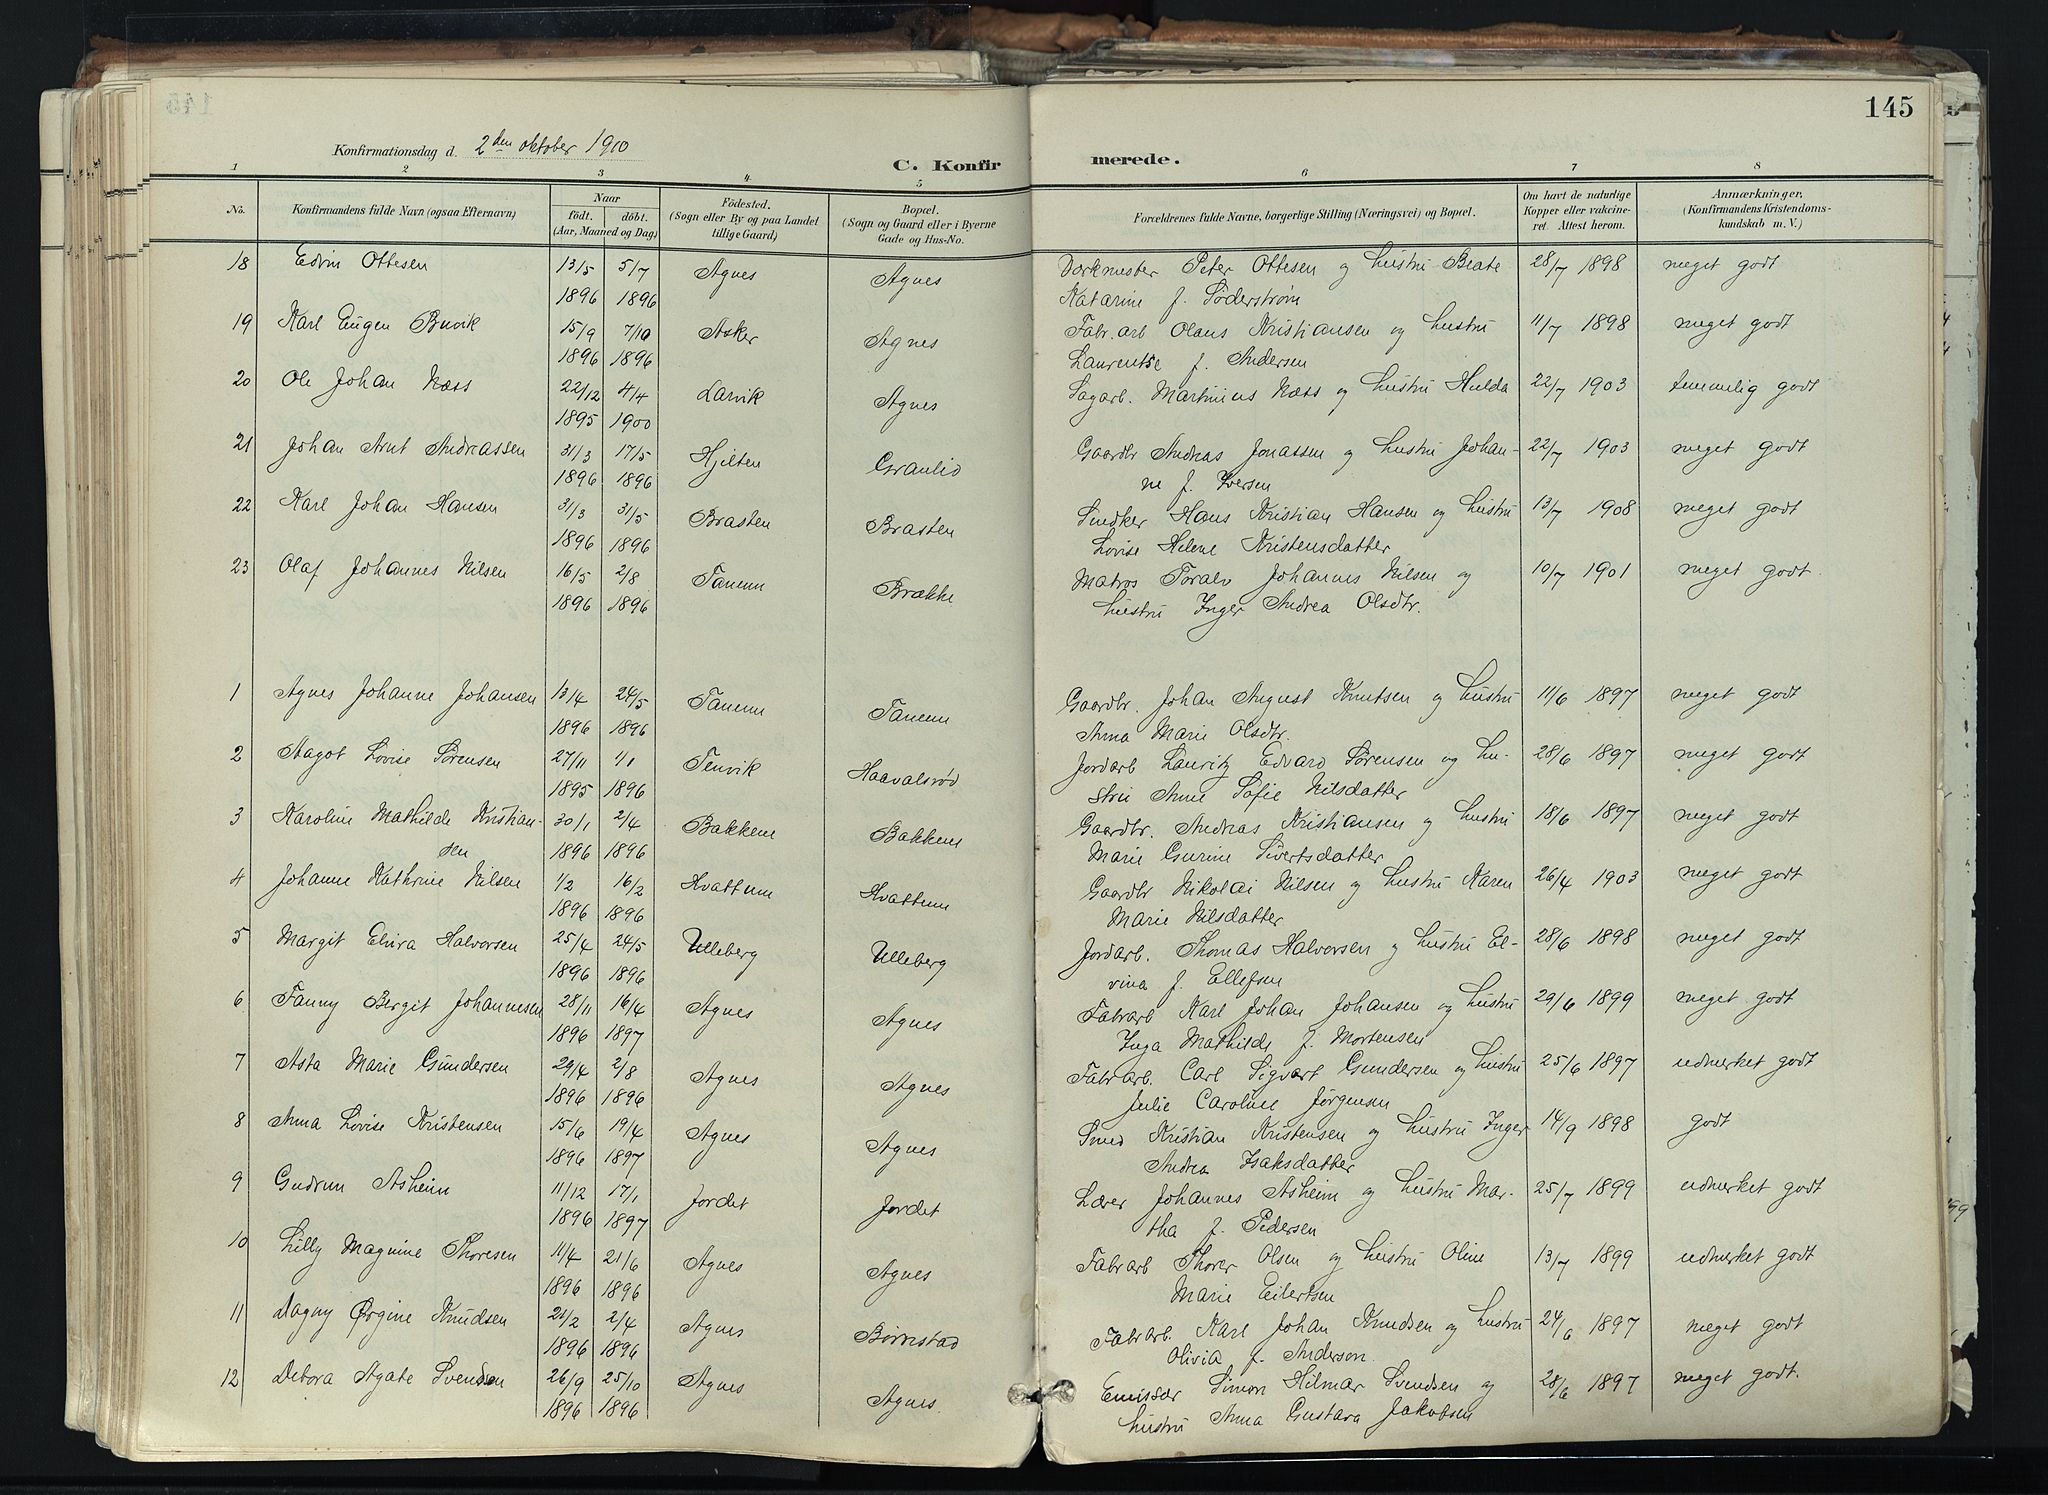 145
Konfirmationsdag d. 2den oktober 1910
C. Konfirmerede.
1 2 3 4 5 6 7 8
No.
Konfirmandens fulde Navn (ogsaa Efternavn)
Naar
født. døbt.
(Aar, Maaned og Dag)
Fødested.
(Sogn eller By og paa Landet
tillige Gaard)
Bopæl.
(Sogn og Gaard eller i Byerne
Gade og Hus-No.
Forældrenes fulde Navne, borgerlige Stilling (Næringsvei) og Bopæl.
Om havt de naturlige
Kopper eller vakcine-
ret. Attest herom.
Anmærkninger,
(Konfirmandens Kristendoms-
kundskab m. V.)
18 Edvin Ottesen 13/5 5/7 Agnes Agnes Peter Ottesen og hustru Beate 28/7 1898 meget godt
1896 1896 Katarine f. Söderstrøm
19 Karl Eugen Buvik 15/9 7/10 Asker Agnes Fabr.arb Olaus Kristiansen og hustru 11/7 1898 meget godt
1896 1896 Laurentse f. Andersen
20 Ole Johan Næss 22/12 4/4 Larvik Agnes Sagarb. Martinius Næss og hustru Hulda 22/7 1903 temmelig godt
1895 1900
21 Johan Arnt Andreassen 31/3 17/5 Hjelten Granlid Gaardbr Andreas Jonassen og hustru Johan- 22/7 1903 meget godt
1896 1896 ne f. Iversen
22 Karl Johan Hansen 31/3 31/5 Brasten Brasten Snedker Hans Kristian Hansen og hustru 13/7 1908 meget godt
1896 1896 Lovise Helene Kristensdatter
23 Olaf Johannes Nilsen 16/5 2/8 Tanem Brække Matros Toralv Johannes Nilsen og 10/7 1901 meget godt
1896 1896 hustru Inger Andrea Olsdtr.
1 Agnes Johanne Johansen 13/4 24/5 Tanem Tanem Gaardbr. Johan August Knutsen og hustru 11/6 1897 meget godt
1896 1896 Anna Marie Olsdtr.
2 Aagot Lovise Sørensen 27/11 1/1 Tenvik Haavalsrød Jordarb Lauritz Edvard Sørensen og hu- 28/6 1897 meget godt
1895 1896 stru Anne Sofie Nilsdatter
3 Karoline Mathilde Kristian- 30/1 2/4 Bakkene Bakkene Gaardbr. Andreas Kristiansen og hustru 18/6 1897 meget godt
sen 1896 1896 Marie Gurine Sivertsdatter
4 Johanne Kathrine Nilsen 1/2 16/2 Hvattum Hvattum Gaardbr Nikolai Nilsen og hustru Karen 26/4 1903 meget godt
1896 1896 Marie Nilsdatter
5 Margit Elvira Halvorsen 25/4 24/5 Ulleberg Ulleberg Jordarb. Thomas Halvorsen og hustru El- 28/6 1898 meget godt
1896 1896 vina f. Ellefsen
6 Fanny Bergit Johannesen 28/11 16/4 Agnes Agnes Fabrarb Karl Johan Johansen og hustru 29/6 1899 meget godt
1896 1897 Inga Mathilde f. Mortensen
7 Asta Marie Gundersen 29/4 2/8 Agnes Agnes Fabrarb. Carl Sigvart Gundersen og hustru 25/6 1897 udmerket godt
1896 1896 Julie Caroline Jørgensen
8 Anna Lovise Kristensen 15/6 19/4 Agnes Agnes Smed Kristian Kristensen og hustru Inger 14/9 1898 godt
1896 1897 Andrea Isaksdatter
9 Gudrun Asheim 11/12 17/1 Jordet Jordet Lærer Johannes Asheim og hustru Mar- 25/7 1899 udmerket godt
1896 1897 tha f. Pedersen
10 Lilly Magnine Thoresen 11/4 21/6 Agnes Agnes Fabrarb Thorer Olsen og hustru Oline 13/7 1899 udmerket godt
1896 1896 Marie Eilertsen
11 Dagny Ørgine Knudsen 21/2 2/4 Agnes Børrestad Fabrarb. Karl Johan Knudsen og hustru 24/6 1897 meget godt
1896 1896 Olivia f. Anderson
12 Debora Agate Svendsen 26/9 25/10 Agnes Agnes. Emissær Simon Hilmar Svendsen og 28/6 1897 meget godt.
1896 1896 hustru Anna Gustava Jakobsen